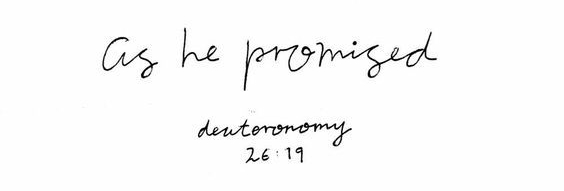 as he promised
deuteronomy
26:19